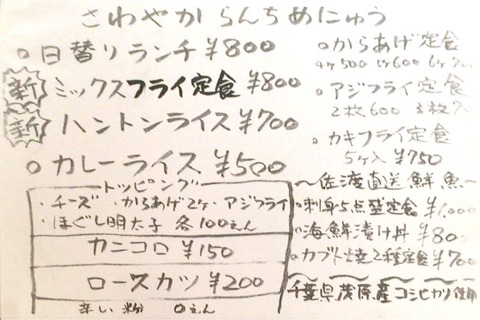 さわやか らんちめにゅう
○日替りランチ ¥800
新 ミックスフライ定食 ¥800
新 ハントンライス ¥700
○カレーライス ¥500
トッピング
・チーズ ・からあげ2ケ ・アジフライ
・ほぐし明太子 各100えん
カニコロ ¥150
ロースカツ ¥200
辛い粉 0えん
○からあげ定食
4ケ500 5ケ600 6ケ
○アジフライ定食
2枚600 3枚
○カキフライ定食
5ケ入 ¥750
〜佐渡直送鮮魚〜
○刺身5点盛定食 ¥1,000
○海鮮漬け丼 ¥800
○カブト焼2種定食 ¥700
千葉県茂原産コシヒカリ使用